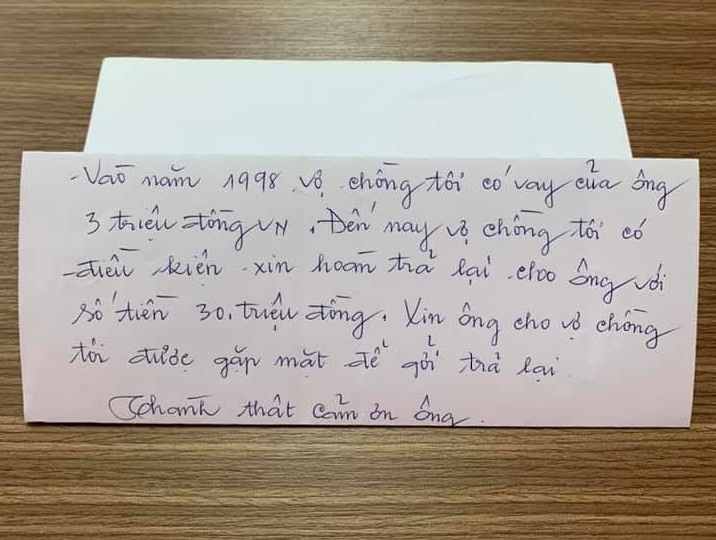 - Vào năm 1998 vợ chồng tôi có vay của ông
3 triệu đồng VN. Đến nay vợ chồng tôi có
điều kiện xin hoàn trả lại cho ông với
số tiền 30. triệu đồng. Xin ông cho vợ chồng
tôi được gặp mặt để gởi trả lại.
Thành thật cảm ơn ông.